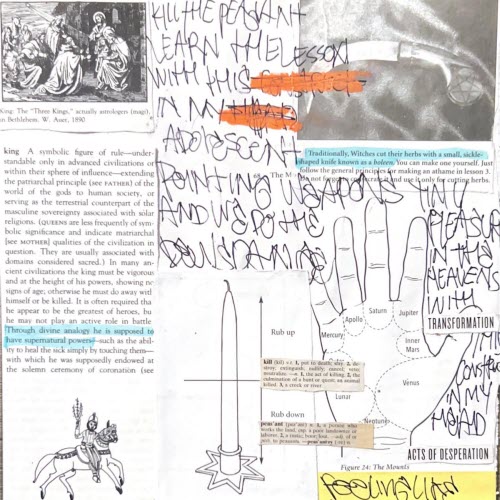 KILL THE PEASANT
LEARN THE LESSON
WITH THIS
IN MY
ADOLESCENT
POINTING WEAPONS
AND WE DO THE
King. The "Three Kings," actually astrologers (magi),
in Bethlehem. W. Auer, 1890
king A symbolic figure of rule—under-
standable only in advanced civilizations or
within their sphere of influence—extending
the patriarchal principle (see FATHER) of the
world of the gods to human society, or
serving as the terrestrial counterpart of the
masculine sovereignty associated with solar
religions. (QUEENS are less frequently of sym-
bolic significance and indicate matriarchal
[see MOTHER] qualities of the civilization in
question. They are usually associated with
domains considered sacred.) In many an-
cient civilizations the king must be vigorous
and at the height of his powers, showing no
signs of age; otherwise he must do away with
himself or be killed. It is often required that
he appear to be the greatest of heroes, but
he may not play an active role in battle.
Through divine analogy he is supposed to
have supernatural powers—such as the abil-
ity to heal the sick simply by touching them—
with which he was supposedly endowed at
the solemn ceremony of coronation (see
Traditionally, Witches cut their herbs with a small, sickle-
shaped knife known as a boleen. You can make one yourself. Just
follow the general principles for making an athame in lesson 3.
and use it only for cutting herbs.
68 The
PLEASURE
IN THIS
HEAVENS
WITH
TRANSFORMATION
MY
IN MY
HEAD
ACTS OF DESPERATION
Apollo
Saturn
Jupiter
Mercury
Inner
Mars
Venus
Lunar
Neptune
Figure 24: The Mounts
Rub up
Rub down
kill (kil) v.t. 1. put to death; slay. 2. de-
stroy; extinguish; nullify; cancel; veto;
neutralize. —n. 1. the act of killing. 2. the
culmination of a hunt or quest; an animal
killed. 3. a creek or river.
peas'ant (pez'ənt) n. 1. a person who
works the land, esp. a poor landowner or
laborer. 2. a rustic; boor; lout. —adj. of or
FEELING LIKE